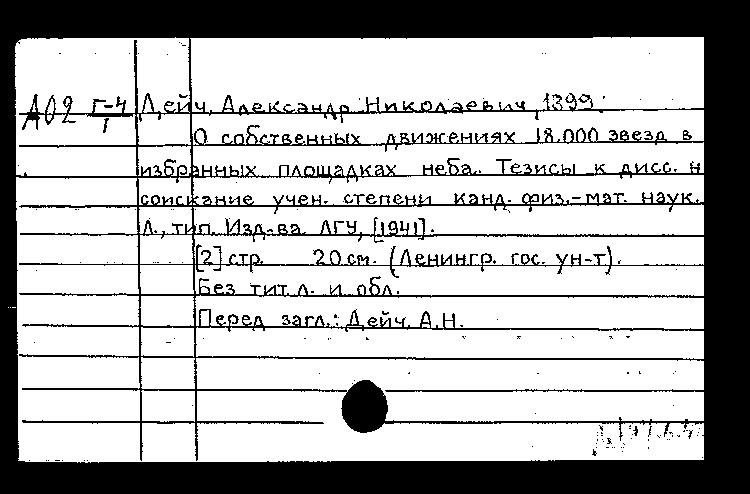 А02 Г-4/1 Дейч, Александр Николаевич, 1399.
О собственных движениях 18.000 звезд в
избранных площадках неба. Тезисы к дисс. н
соискание учен. степени канд. физ.-мат. наук.
Л., тип. Изд-ва ЛГУ, [1941].
[2] стр. 20 см. (Ленингр. гос. ун-т).
Без тит. л. и обл.
Перед загл.: Дейч, А.Н.